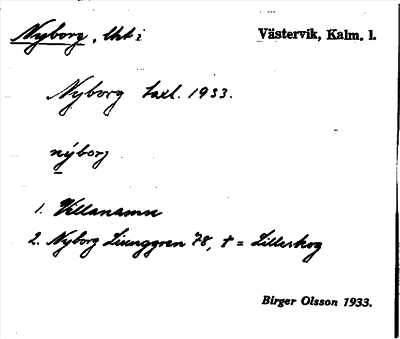 Nyborg, lht i Västervik, Kalm. l.
Nyborg taxl. 1933.
nýborj
1. Villanamn
2. Nyborg Ljunggren 78, t = Lillerskog
Birger Olsson 1933.